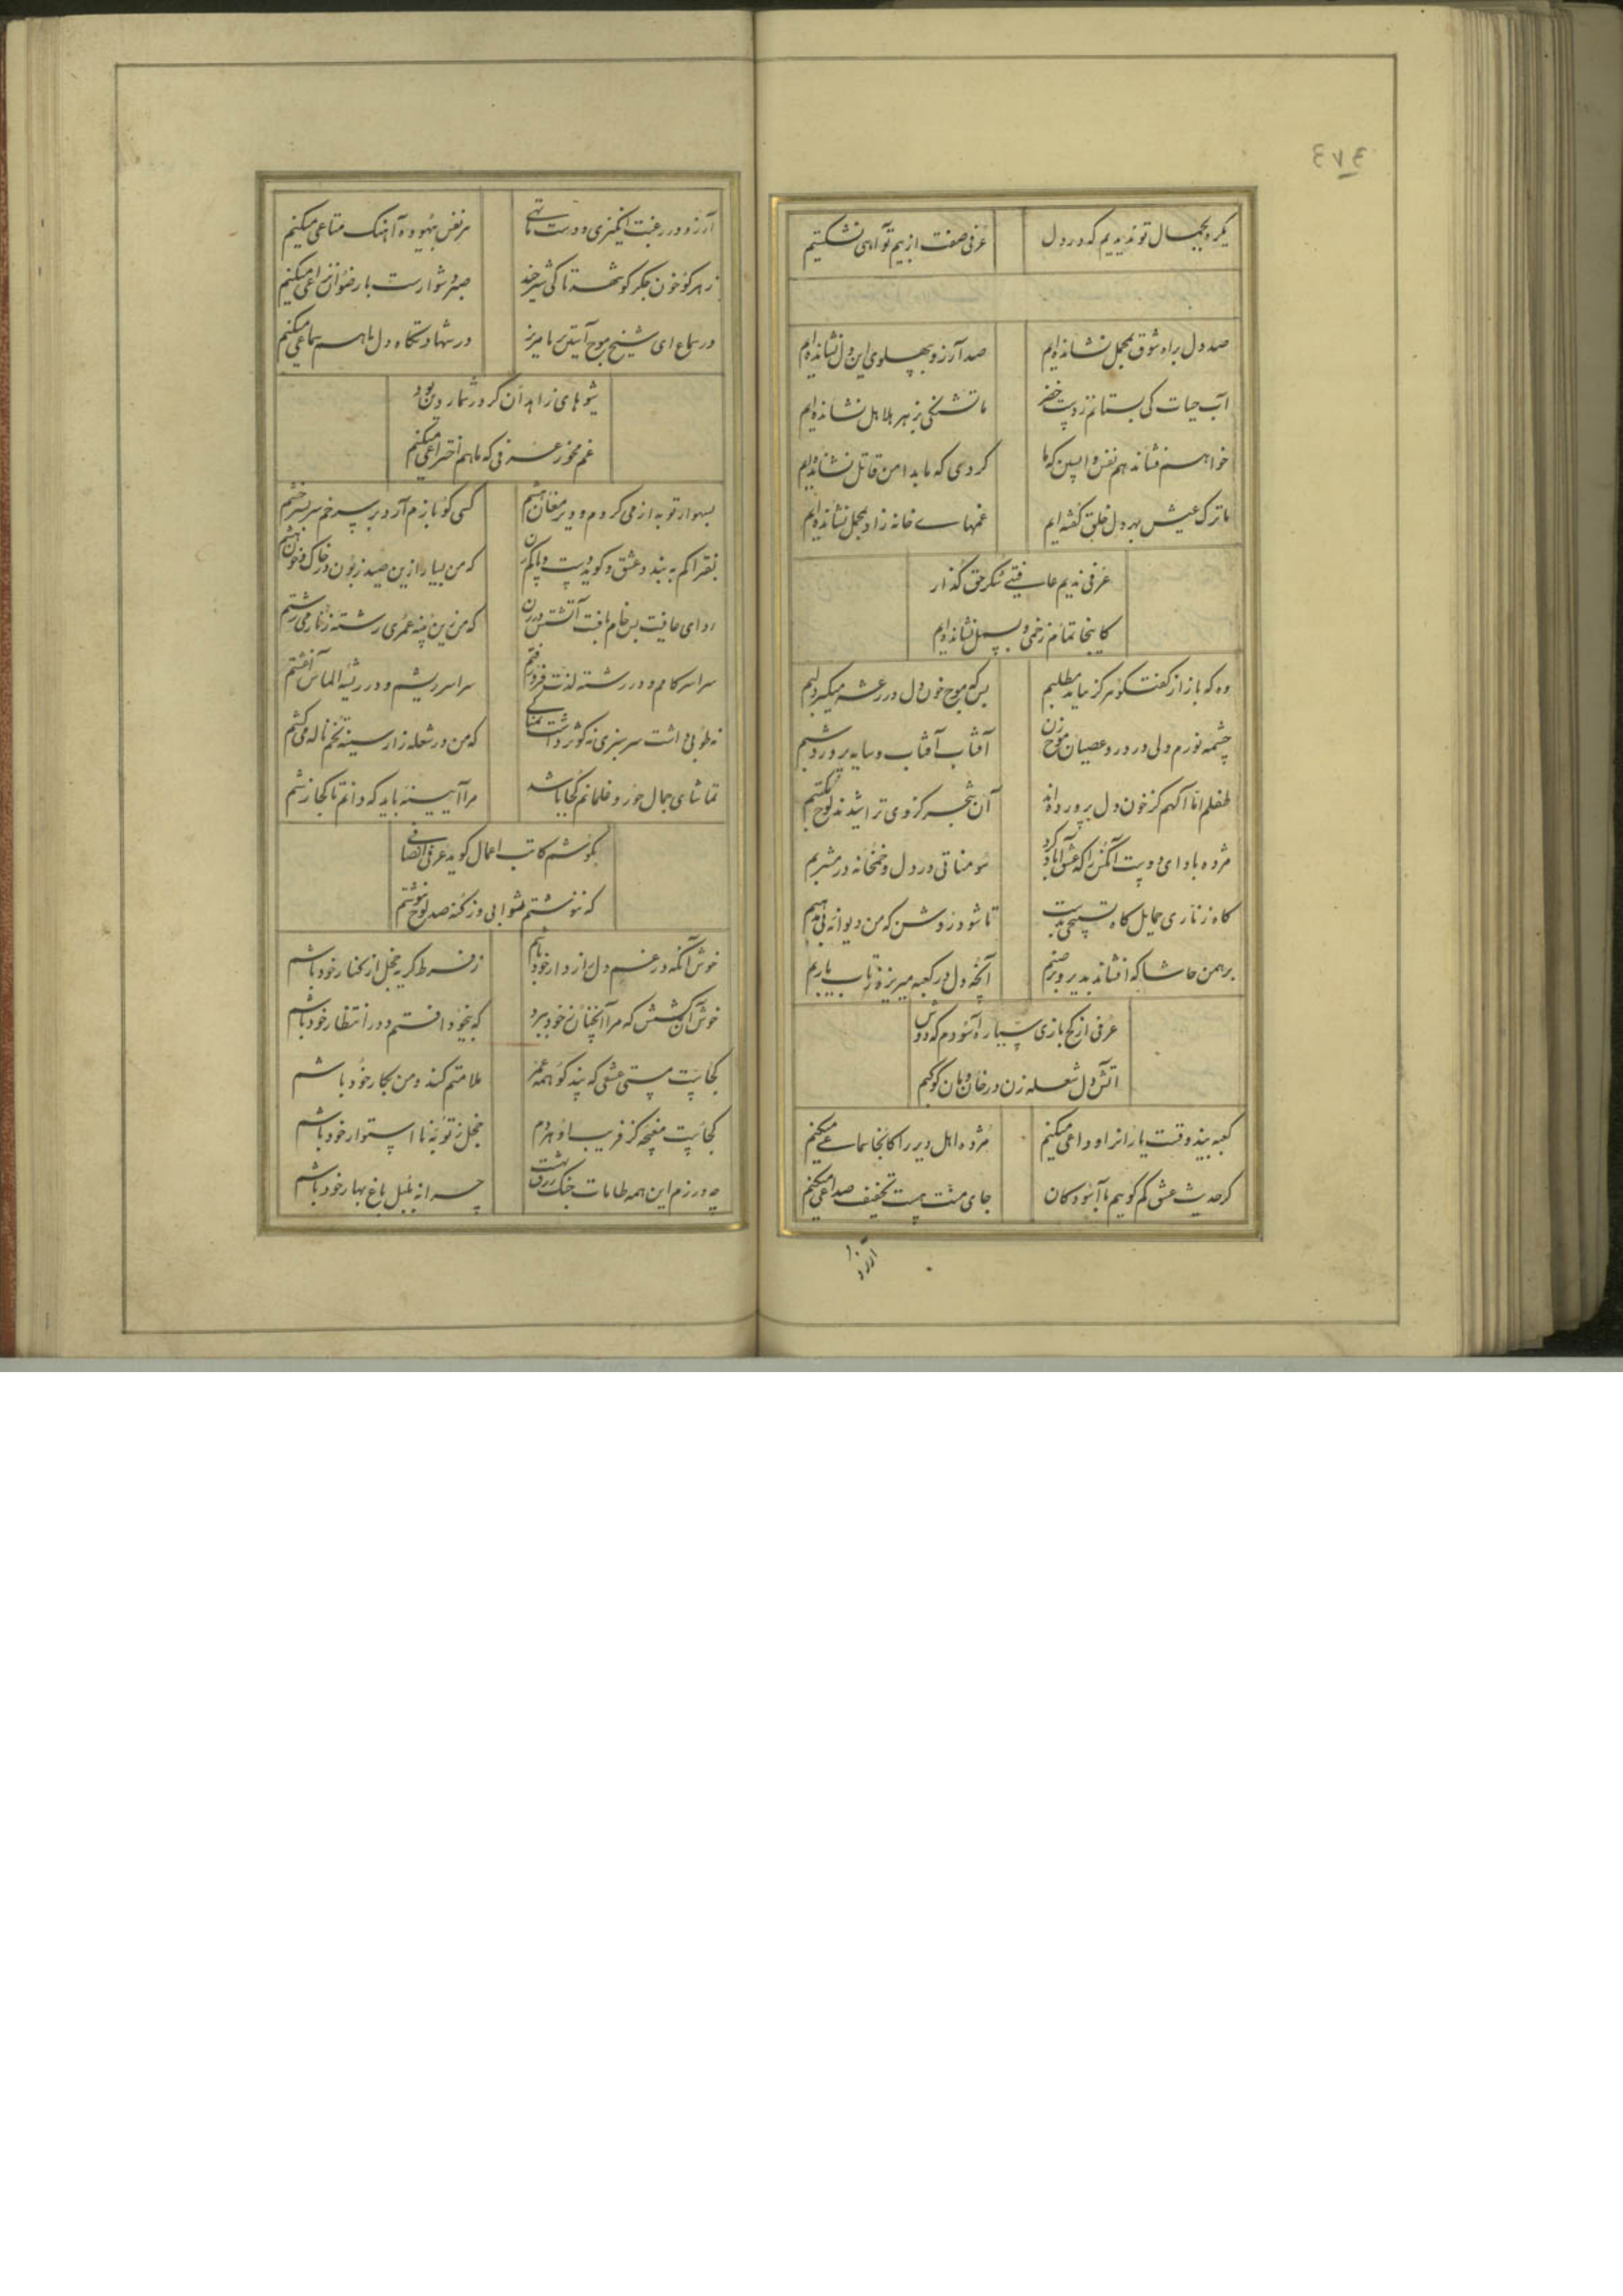 ٤٧٤
یکره بجمال تو ندیدیم که در دل
عرفی صفت از بیم تو آهی نشکستیم
صد دل براه شوق بمحمل نشانده‌ایم
صد آرزو بپهلوی این دل نشانده‌ایم
آب حیات کی بستانم ز دست خضر
ما تشنگی بزهر هلاهل نشانده‌ایم
خواهم فشاند هم نفس واپسین که ما
کردی که ما بدامن قاتل نشانده‌ایم
ما ترک عیش بهر دل خلق گفته‌ایم
غمهای خانه زاد بمحمل نشانده‌ایم
عرفی ندیم عافیتی شکر حق گذار
کاینجا تمام زخمی و بسمل نشانده‌ایم
وه که باز از گفتگو هرگز نیاید مطلبم
بس که موج خون دل در رعشه میگیرد لبم
چشمه نورم ولی در درد عصیان موج زن
آفتاب آفتاب و سایه پرورد شبم
طفلم اما آگهم کز خون دل پرورده‌اند
آن شجر کز وی تراشیدند لوح مکتبم
مژده باد ای دوست آنکس را که عشق آباد کرد
سومناتی در دل و خمخانه در مشربم
گاه زناری حمایل گاه تسبیحی بدست
تا شود روشن که من دیوانه بی مذهبم
برهمن حاشا که افشاند بدیر و بر صنم
آنچه دل در کعبه میریزد ز تاب یاربم
عرفی از کج بازی سیاره آسودم که دوش
آتش دل شعله زن در خان و مان کوکبم
کعبه بیند وقت یاران را وداعی میکنیم
مژده اهل دیر را کانجا سماعی میکنیم
گر حدیث عشق کم گوییم با آسودگان
جای منت هست تخفیف صداعی میکنیم
آرزو
آرزو در رغبت انگیزی و دست ما تهی
هر نفس بیهوده آهنگ متاعی میکنیم
زهر کو خون جگر کو شهد تا کی شیر چند
صبر دشوارست با رضوان نزاعی میکنیم
در سماع ای شیخ موج آستین بر ما مریز
در شهادتگاه دل ما هم سماعی میکنیم
شیوهای زاهدان گر در شمار دین بود
غم مخور عرفی که ما هم اختراعی میکنیم
بسهو از توبه از می کردم و دیر مغان هشتم
کسی کو تا بزم آرد بر سر خم سر بسر خشتم
بفتراکم به بندد عشق و گوید دست و پا کم زن
که من بسیار ازین صید زبون در خاک و خون هشتم
ردای عافیت بس خام بافت آتشش در زن
که من زین پنبه عمری رشته زنار می رشتم
سراسر کامم و در رشته لذت فرو رفتم
سراسر ریشم و در ریزه الماس آغشتم
نه طوبی داشت سرسبزی نه کوثر داشت نمناکی
که من در شعله زار سینه تخم ناله می کشتم
تماشای جمال حور و غلمانم کجا باشد
مرا آیینه باید که دانم تا کجا زشتم
بگوشم کاتب اعمال گوید عرفی انصافی
که ننوشتم ثوابی وز گنه صد لوح بنوشتم
خوش آنکه در غم دل راز دار خود باشم
ز فرط گریه خجل از کنار خود باشم
خوش آن کشش که مرا آنچنان ز خود ببرد
که بیخود افتم و در انتظار خود باشم
کجاست مستی عشقی که پند گو همه عمر
ملامتم کند و من بکار خود باشم
کجاست مغبچه کز فریب او هر دم
خجل ز توبه نا استوار خود باشم
چه ورزم این همه طامات خنک زرق بهشت
چرا نه بلبل باغ بهار خود باشم